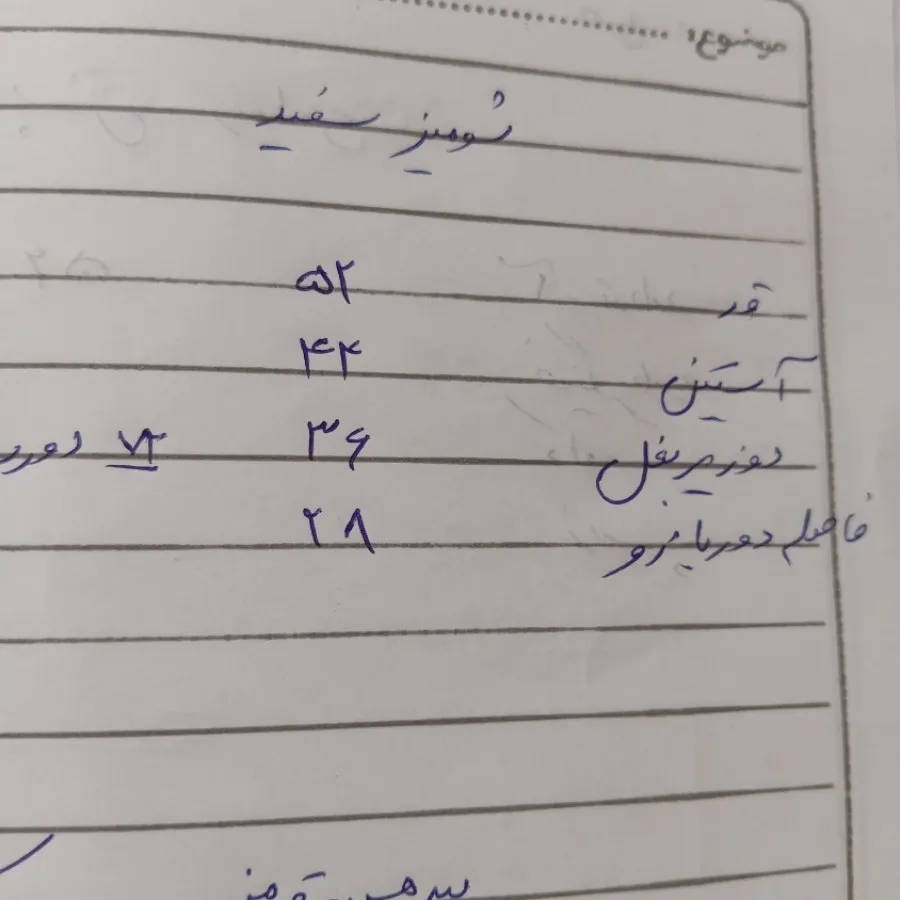 موضوع:
شومیز سفید
قد ۵۲
آستین ۴۴
دو زیر بغل ۳۶ ۷۲ دور
فاصله دو بازو ۲۸
قرمز